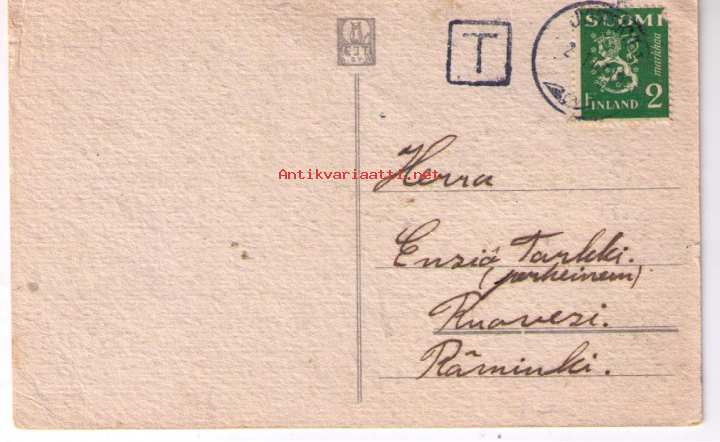 T
SUOMI
markkaa
FINLAND 2
Antikvariaatti.net
Herra
Ensio Tarkki.
(perheineen)
Ruovesi.
Räminki.